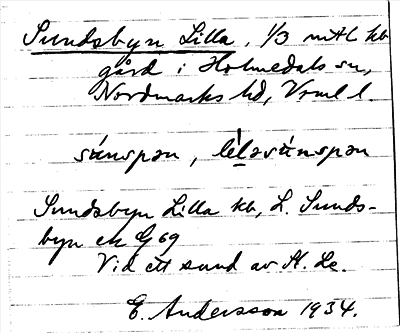 Sundsbyn Lilla, 1/3 mtl kb
gård i Holmedals sn,
Nordmarks hd, Vrml l.
súnspən, lèləvúnspən
Sundsbyn Lilla kb, L. Sunds-
byn ek G 69
Vid ett sund av St. Le.
E. Andersson 1934.